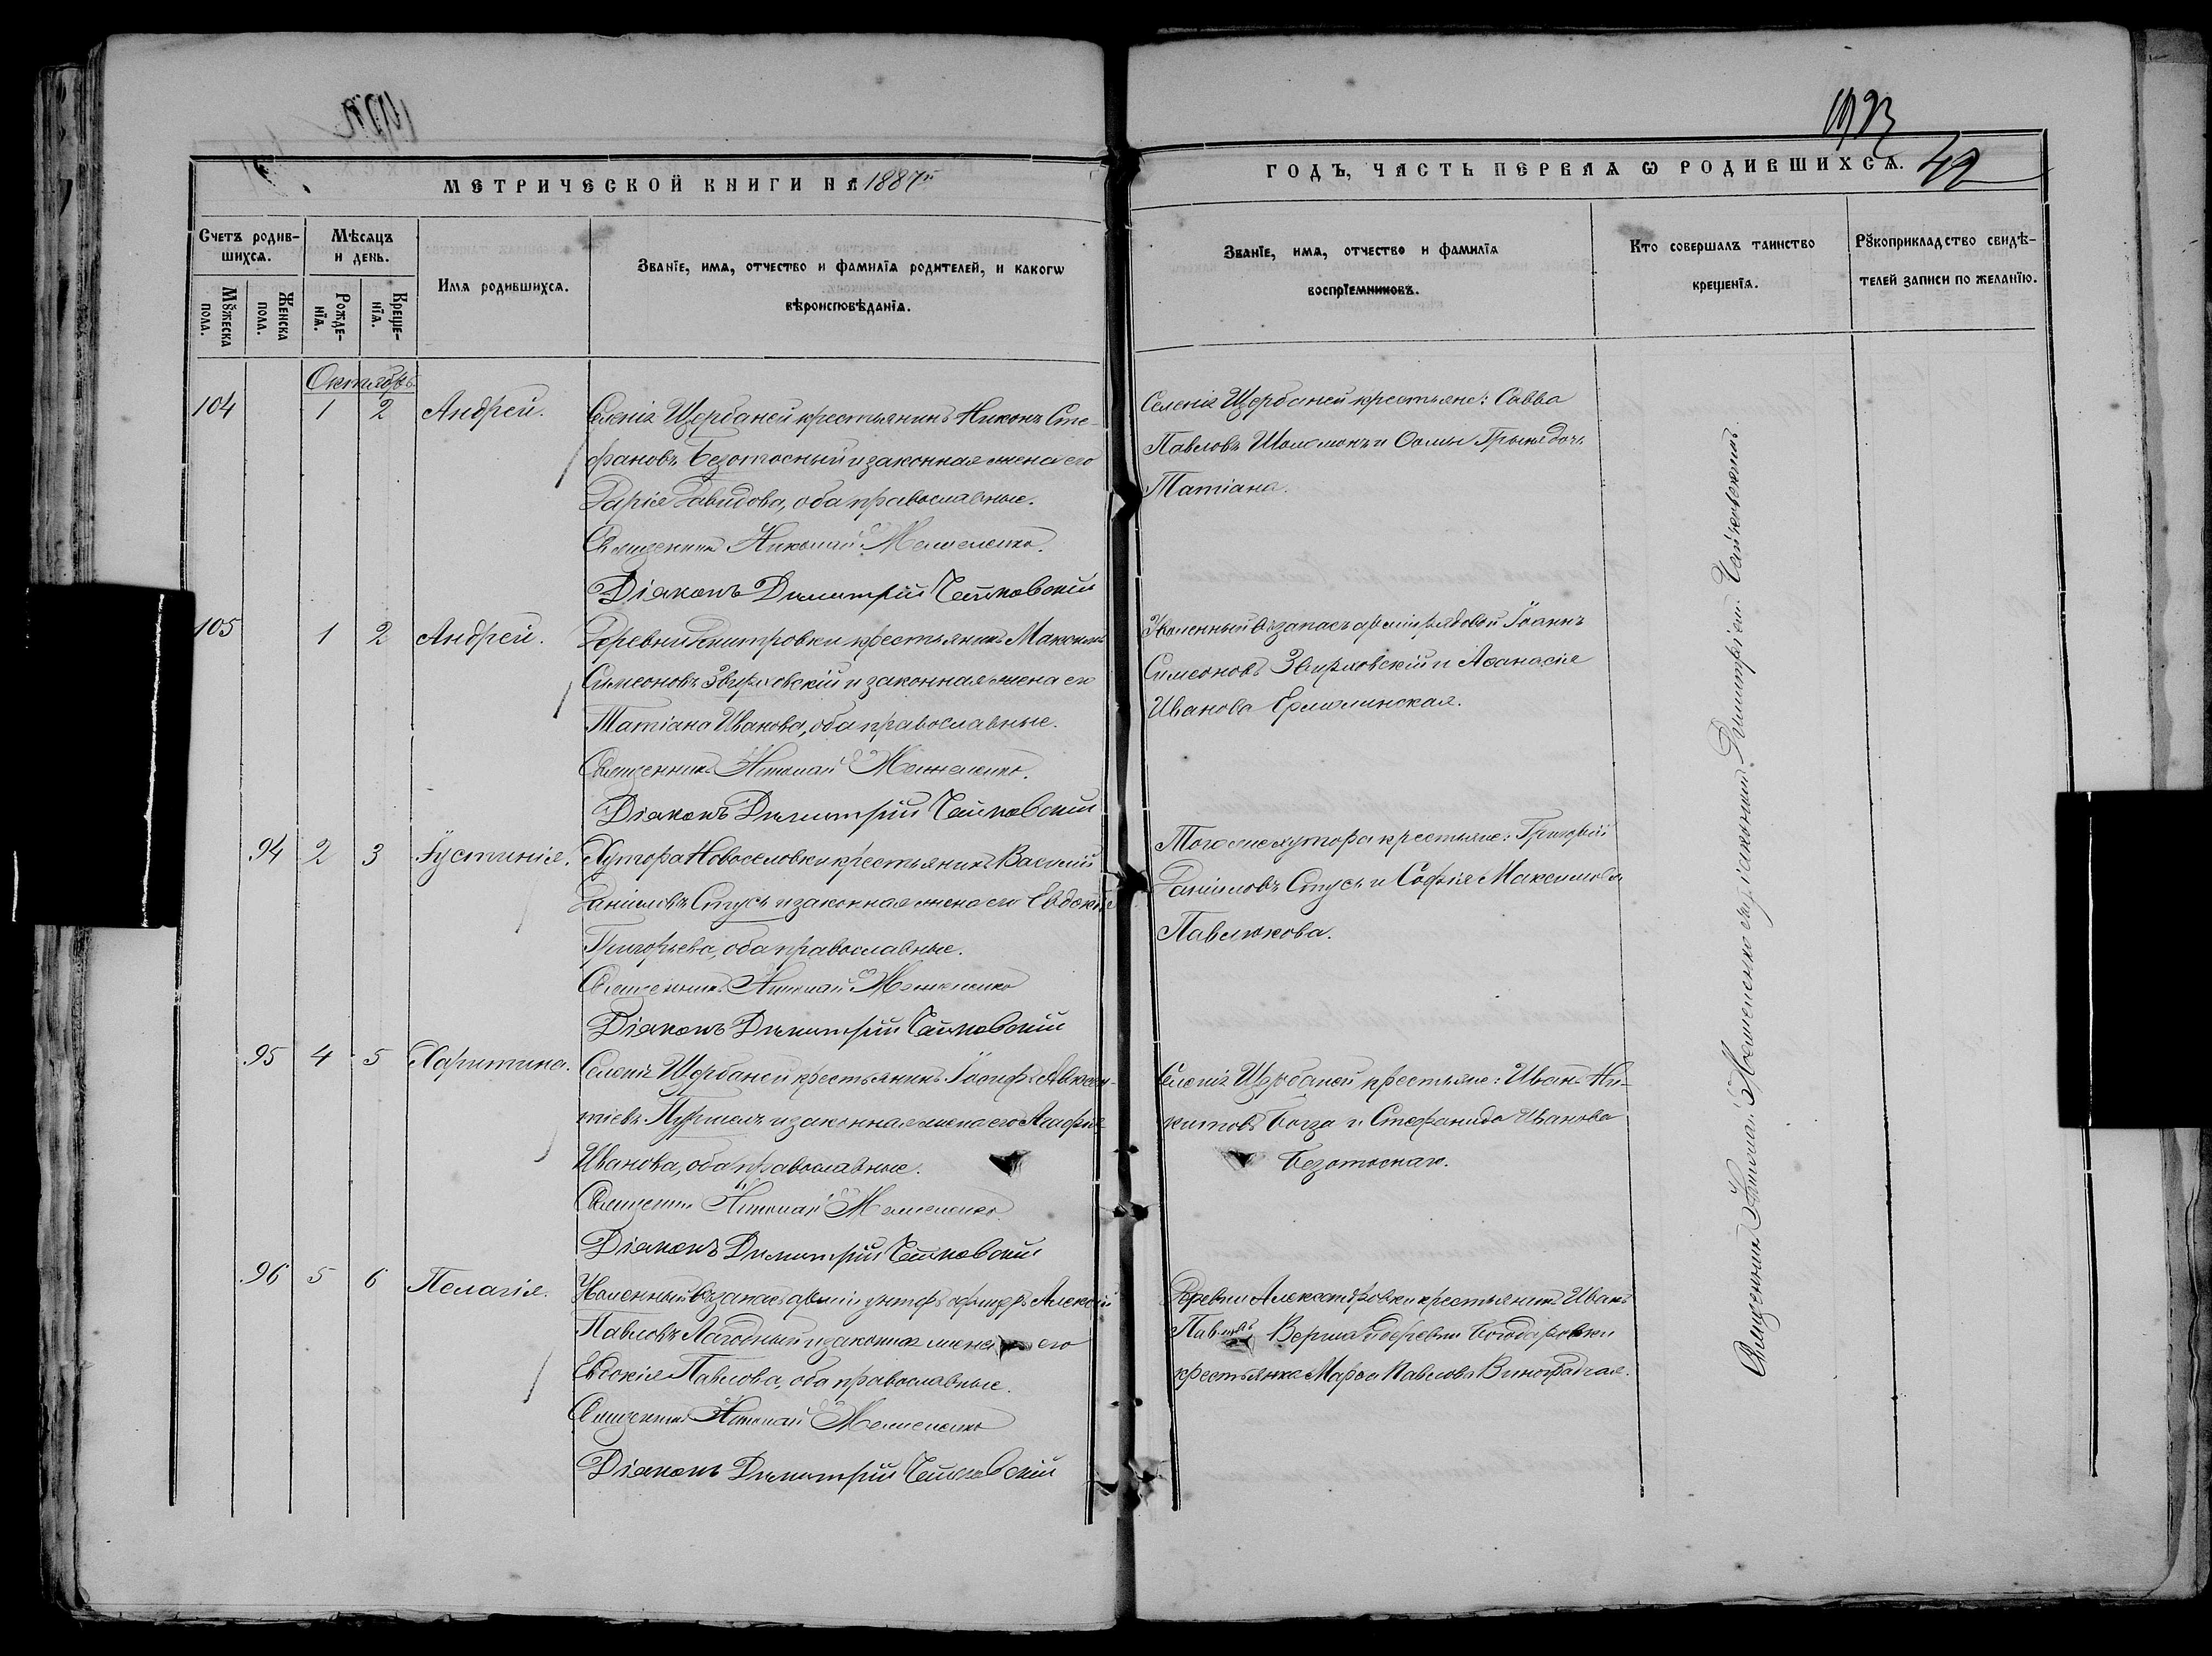 1023
МЕТРИЧЕСКОЙ КНИГИ НА 1887й
ГОДЪ, ЧАСТЬ ПЕРВАЯ Ѡ РОДИВШИХСЯ.
Счетъ родив-
шихся.
Мѣсяцъ
и день.
Мꙋжеска
пола.
Женска
пола.
Рожде-
нїя.
Креще-
нїя.
Имя родившихся.
Званїе, имя, отчество и фамилїя родителей, и какогѡ
вѣроисповѣданїя.
Званїе, имя, отчество и фамилїя
воспрїемниковъ.
Кто совершалъ таинство
крещенїя.
Рꙋкоприкладство свидѣ-
телей записи по желанїю.
Октябрь
104 1 2 Андрей.
Селенія Щербаней крестьянинъ Никонъ Сте-
фановъ Безотосный и законная жена его
Дарія Давидова, оба православные.
Священникъ Николай
Діаконъ Димитрій Чайковскій
Селенія Щербаней крестьяне: Савва
Павловъ и Ѳомы дочь
Татіана.
105 1 2 Андрей.
Деревни Дмитровки крестьянинъ Максимъ
Симеоновъ Звирховскій и законная жена его
Татіана Иванова, оба православные.
Священникъ Николай
Діаконъ Димитрій Чайковскій
Уволенный въ запасъ арміи рядовой Іоаннъ
Симеоновъ Звирховскій и Аѳанасія
Иванова
94 2 3 Іустинія.
Хутора Новоселовки крестьянинъ Василій
Даніиловъ Стусь и законная жена его Евдокія
Григорьева, оба православные.
Священникъ Николай
Діаконъ Димитрій Чайковскій
Того же хутора крестьяне: Григорій
Даніиловъ Стусь и Софія Максимова
Павлюкова.
95 4 5 Харитина.
Селенія Щербаней крестьянинъ Іосифъ Авксен-
тіевъ и законная жена его Агафія
Иванова, оба православные.
Священникъ Николай
Діаконъ Димитрій Чайковскій
Селенія Щербаней крестьяне: Иванъ Ни-
китовъ Богза и Стефанида Иванова
Безотоснаго.
96 5 6 Пелагія.
Уволенный въ запасъ арміи унтеръ офицеръ Алексій
Павловъ Лагодный и законная жена его
Евдокія Павлова, оба православные.
Священникъ Николай
Діаконъ Димитрій Чайковскій
Деревни Александровки крестьянинъ Иванъ
Павловъ и деревни Богодаровки
крестьянка Марѳа Павлова
Священникъ Николай съ діакономъ Димитріемъ Чайковскимъ.